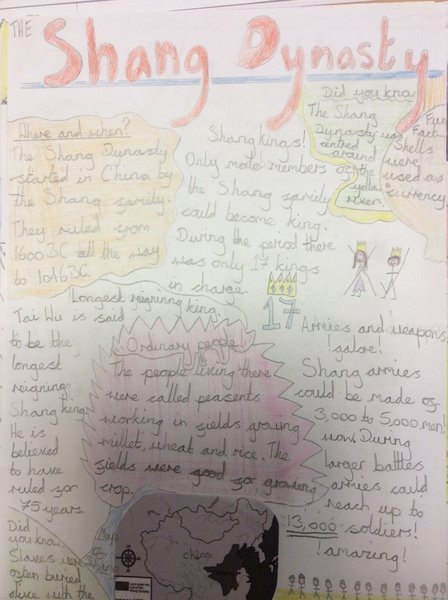 THE
Shang Dynasty
Where and when?
The Shang Dynasty
started in China by
the Shang family
They ruled from
1600BC all the way
to 1046BC.
Shang kings!
Only male members of
the Shang family
could become king.
During the period there
was only 17 kings
in charge.
17
Did you know
The Shang
Dynasty was
centred
around
the
yellow
river.
Fun
Fact
Shells
were
used as
currency
Longest reigning king.
Tai Wu is said
to be the
longest
reigning
Shang king
He is
believed
to have
ruled for
75 years.
Ordinary people!
The people living there
were called peasents
working in fields growing
millet, wheat and rice. The
fields were good for growing
crop.
Armies and weapons,
!galore!
Shang armies
could be made of
3,000 to 5,000 men!
wow. During
larger battles
armies could
reach up to
13,000 soldiers!
!amazing!
Did
you know..
Slaves were
often buried
alive with the
Map
of
Shang
china